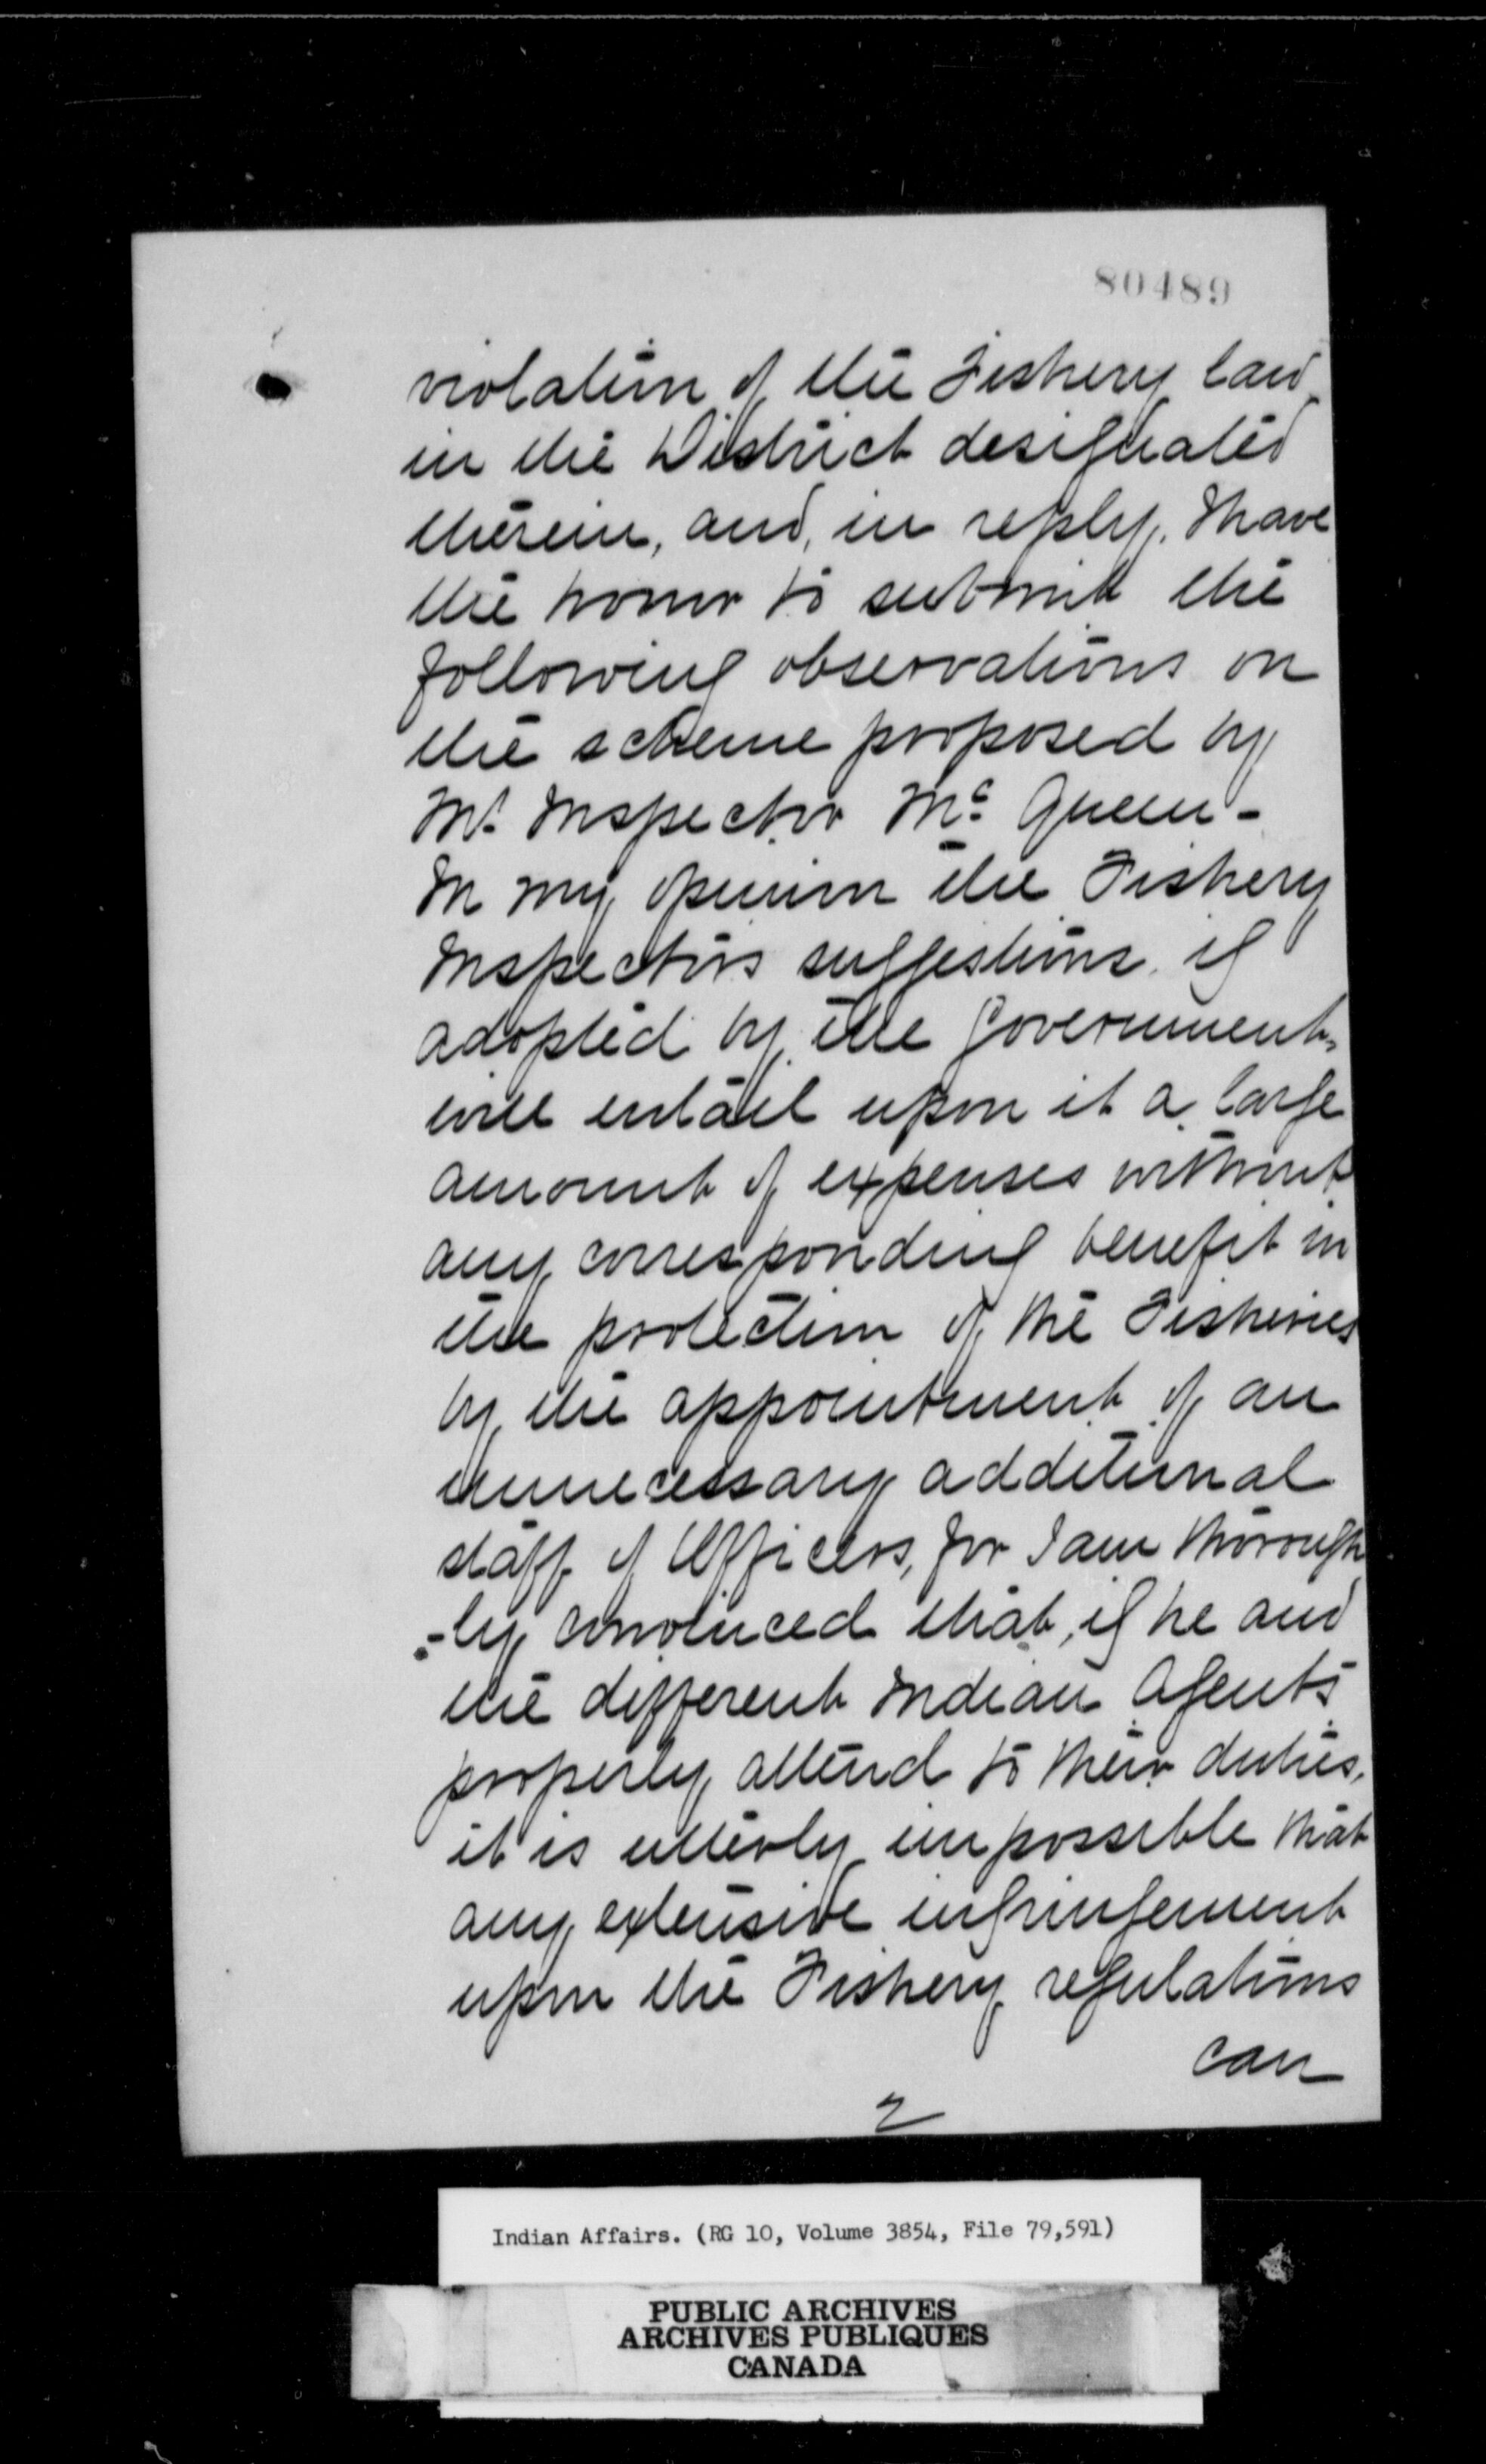 80489
violation of the Fishery law
in the District designated
therein, and, in reply, I have
the honor to submit the
following observations on
the scheme proposed by
Mr. Inspector Mc Queen -
In my opinion the Fishery
Inspectors suggestions, if
adopted by the Government,
will entail upon it a large
amount of expenses without
any corresponding benefit in
the protection of the Fisheries
by the appointment of an
unnecessary additional
staff of Officers, for I am thorough
-ly convinced that, if he and
the different Indian Agents
properly attend to their duties,
it is utterly impossible that
any extensive infringement
upon the Fishery regulations
can
2
Indian Affairs. (RG 10, Volume 3854, File 79,591)
PUBLIC ARCHIVES
ARCHIVES PUBLIQUES
CANADA